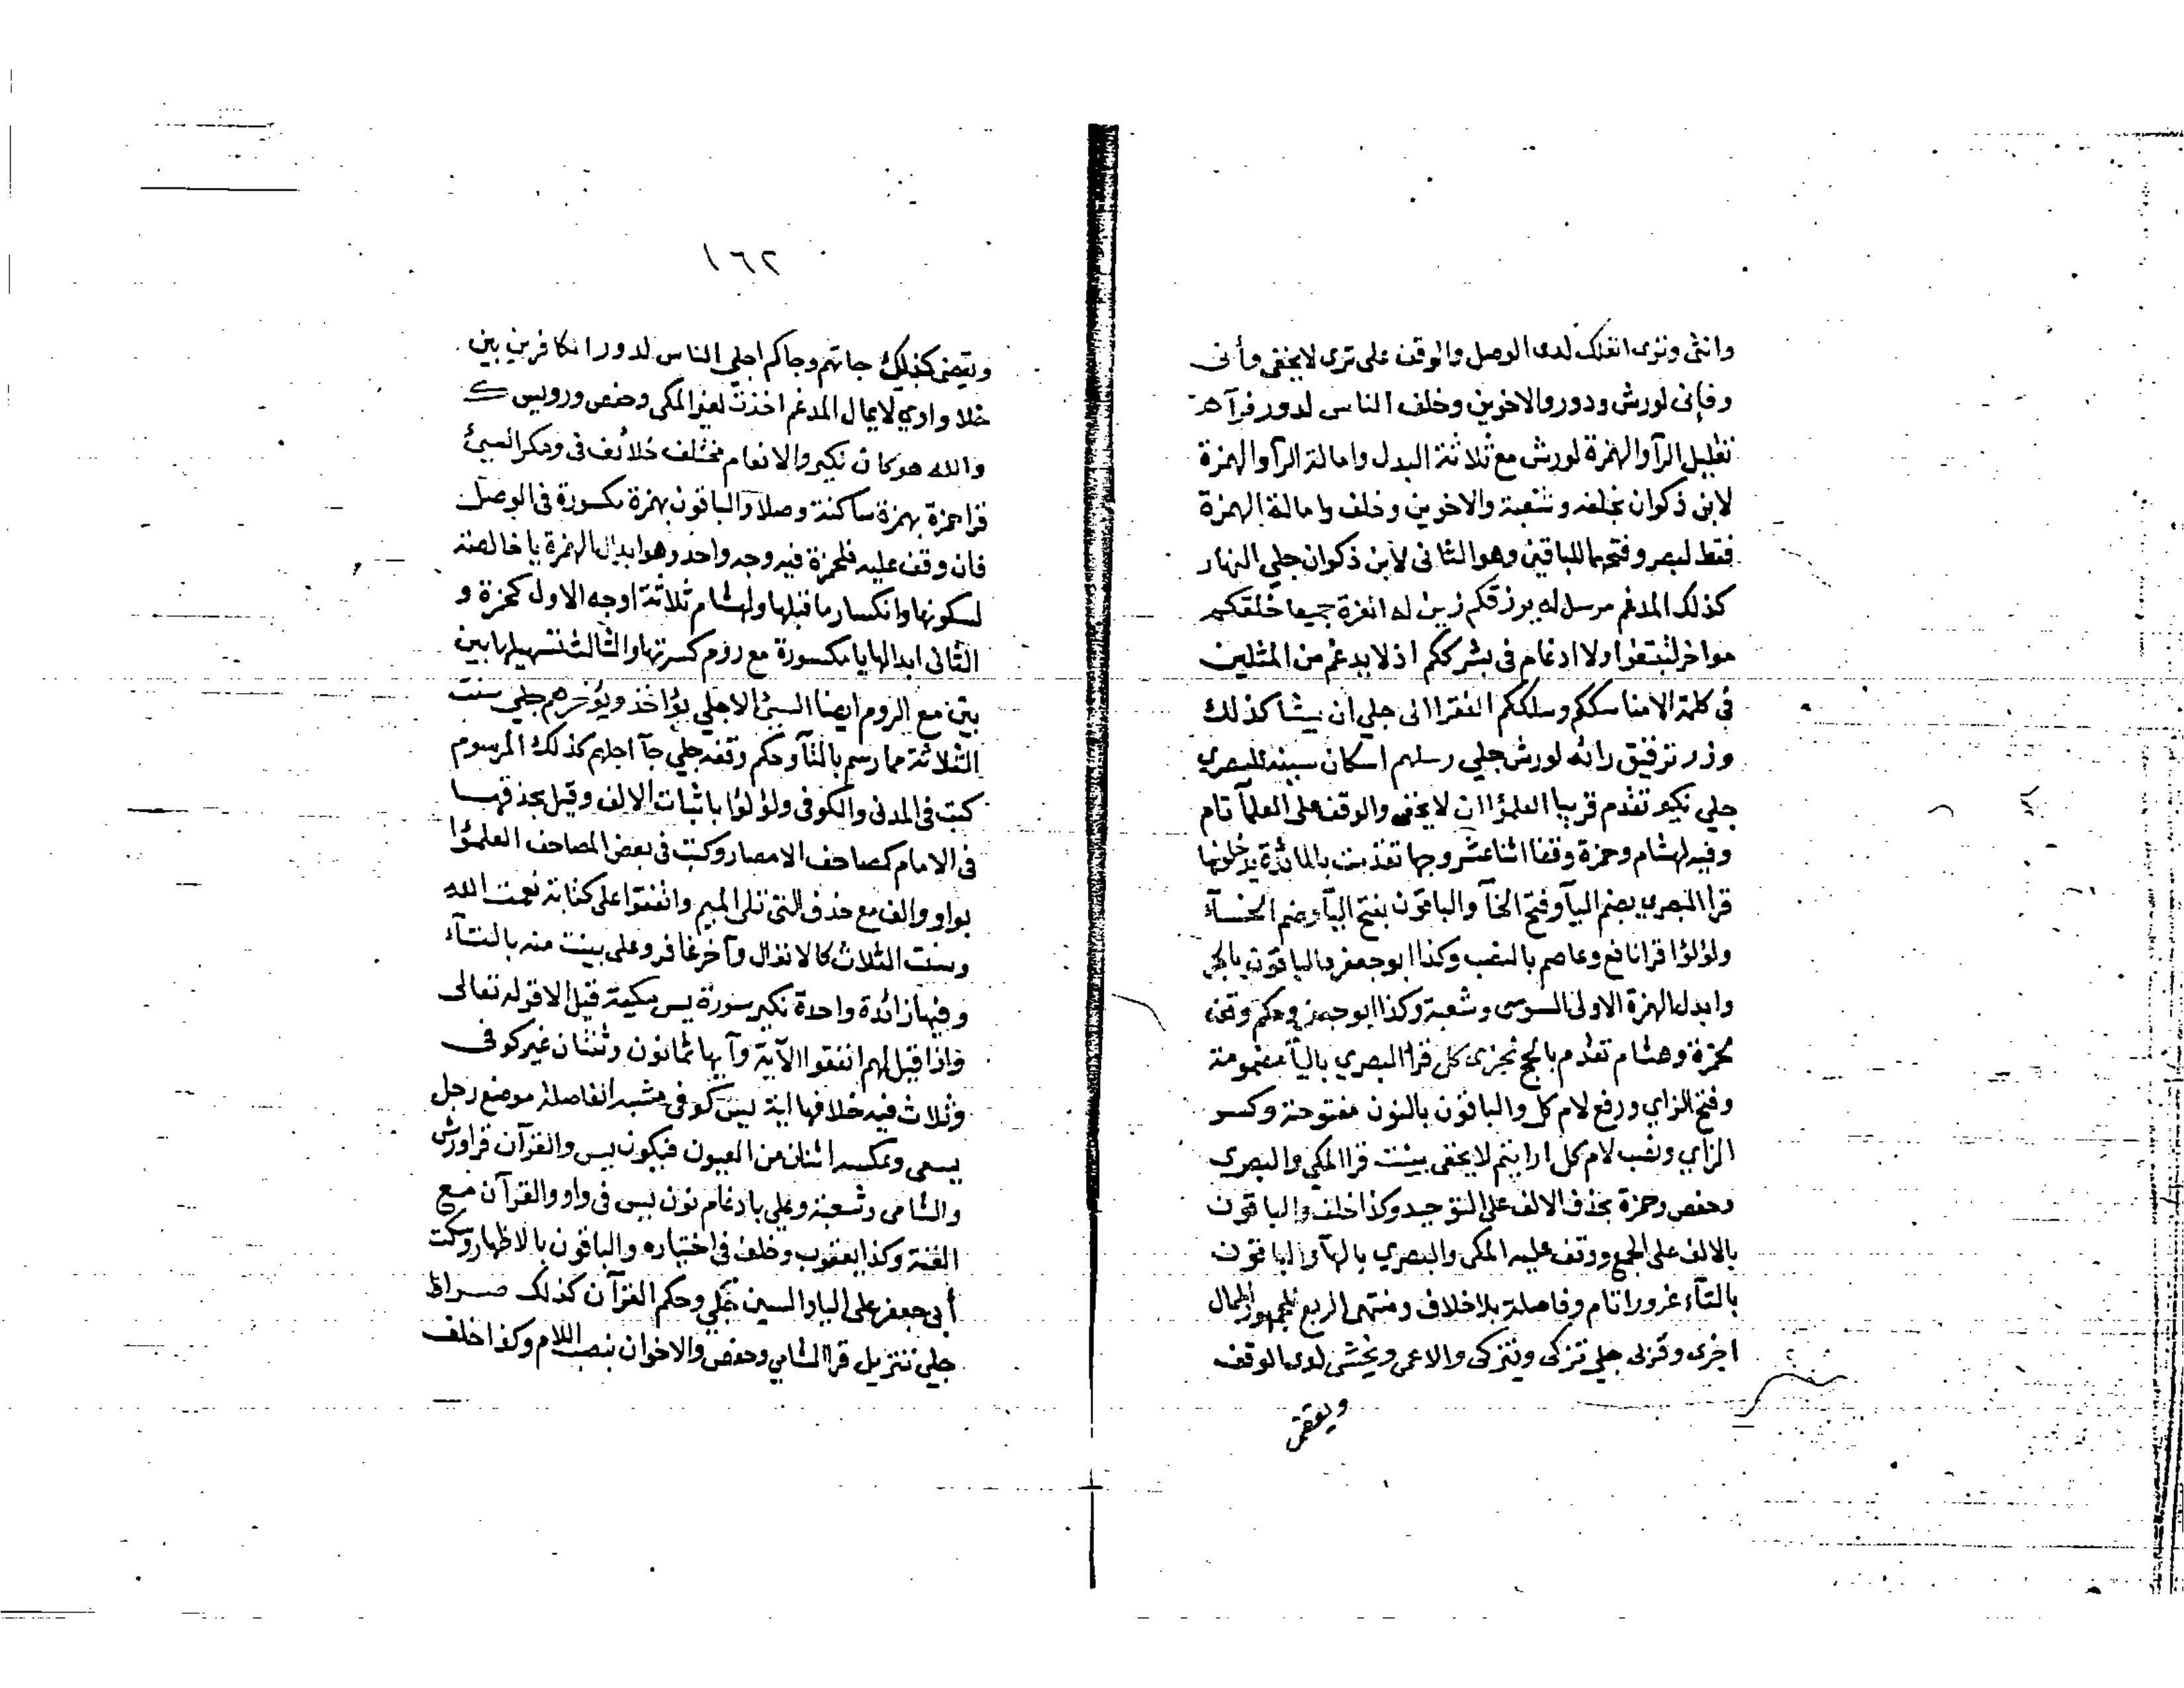 وانثى وترى الفلك لدى الوصل والوقف على ترى لا يخفى وأنى
وفإنى لورش ودور والاخوين وخلف الناس لدور فرآه
تقليل الرآ والهمزة لورش مع ثلاثة البدل وامالة الرآ والهمزة
لابن ذكوان بخلفه وشعبة والاخوين وخلف وامالة الهمزة
فقط لبصر وفتحهما للباقين وهو الثانى لابن ذكوان جلي النهار
كذلك المدغم مرسل له يرزقكم زين له العزة جميعا خلقكم
مواخر لتبتغوا ولا ادغام فى بشرككم اذ لا يدغم من المثلين
فى كلمة الا مناسككم وسلككم الفقرا الى جلي ان يشا كذلك
وزر ترقيق رائه لورش جلي رسلهم اسكان سينه للبصري
جلي نكير تقدم قريبا العلمؤا ان لا يخفى والوقف على العلمآ تام
وفيه لهشام وحمزة وقفا اثنا عشر وجها تقدمت بالمائدة يدخلونها
قرا البصري بضم اليآ وفتح الخآ والباقون بفتح اليآ وضم الخآء
ولؤلؤا قرا نافع وعاصم بالنصب وكذا ابو جعفر والباقون بالجر
وابدل الهمزة الاولى السوسى وشعبة وكذا ابو جعفر وحكم وقفه
لحمزة وهشام تقدم بالحج نجزى كل قرا البصري باليآ مضمومة
وفتح الزاي ورفع لام كل والباقون بالنون مفتوحة وكسر
الزاي ونصب لام كل ارايتم لا يخفى بينت قرا المكي والبصرى
وحفص وحمزة بحذف الالف على التوحيد وكذا خلف والباقون
بالالف على الجمع ووقف عليه المكى والبصري بالهآ والباقون
بالتآء غرورا تام وفاصلة بلا خلاف ومنتهى الربع للجمهور الممال
اخرى وقربى جلي تزكى ويتزكى والاعمى ويخشى لدى الوقف
ويقضى
١٦٢
ويقضى كذلك جاتهم وجاكم اجلي الناس لدور الكافرين بين
خلا واوي لا يمال المدغم اخذت لغير المكى وحفص ورويس ك
والله هو كان نكير والانعام مختلف خلائف فى ومكر السيئ
قرا حمزة بهمزة ساكنة وصلا والباقون بهمزة مكسورة فى الوصل
فان وقف عليه فلحمزة فيه وجه واحد وهو ابدال الهمزة يا خالصة
لسكونها وانكسار ما قبلها ولهشام ثلاثة اوجه الاول كحمزة و
الثانى ابدالها يا مكسورة مع روم كسرتها والثالث تسهيلها بين
بين مع الروم ايضا السيئ الا جلي يؤاخذ ويؤخرهم جلي سنت
الثلاثة مما رسم بالتآ وحكم وقفه جلي جآ اجلهم كذلك المرسوم
كتب فى المدنى والكوفى ولؤلؤا باثبات الالف وقيل بحذفها
فى الامام كمصاحف الامصار وكتب فى بعض المصاحف العلمؤا
بواو والف مع حذف التى تلى الميم واتفقوا على كتابة نعمت الله
وسنت الثلاث كالانفال وآخر غافر وعلى بينت منه بالتآء
وفيها زائدة واحدة نكير سورة يس مكية قيل الا قوله تعالى
واذا قيل لهم انفقوا الآية وآيها ثمانون وثنتان غير كوفى
وثلاث فيه خلافها اية يس كوفى مشبه الفاصلة موضع رجل
يسعى وعكسه اثنان من العيون فيكون يس والقرآن قرا ورش
والشامى وشعبة وعلي بادغام نون يس فى واو والقرآن مع
الغنة وكذا يعقوب وخلف فى اختياره والباقون بالاظهار وسكت
أبى جعفر على اليا والسين جلي وحكم القرآن كذلك صراط
جلي تنزيل قرا الشامي وحفص والاخوان بنصب اللام وكذا خلف